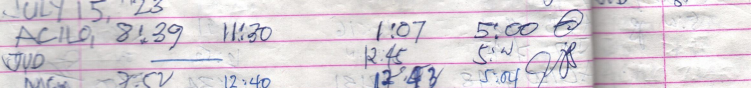 JULY 15, 23
ACILO, 8:39 11:30 1:07 5:00
JUD 12:45
12:40 12:43 5:04